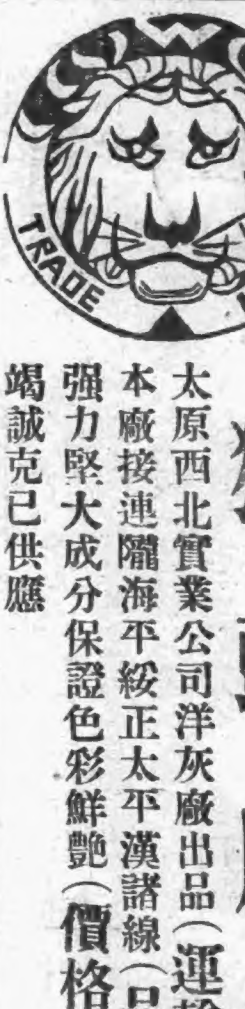 TRADE
太原西北實業公司洋灰廠出品（運
本廠接連隴海平綏正太平漢諸線（品
强力堅大成分保證色彩鮮艷（價格
竭誠克己供應